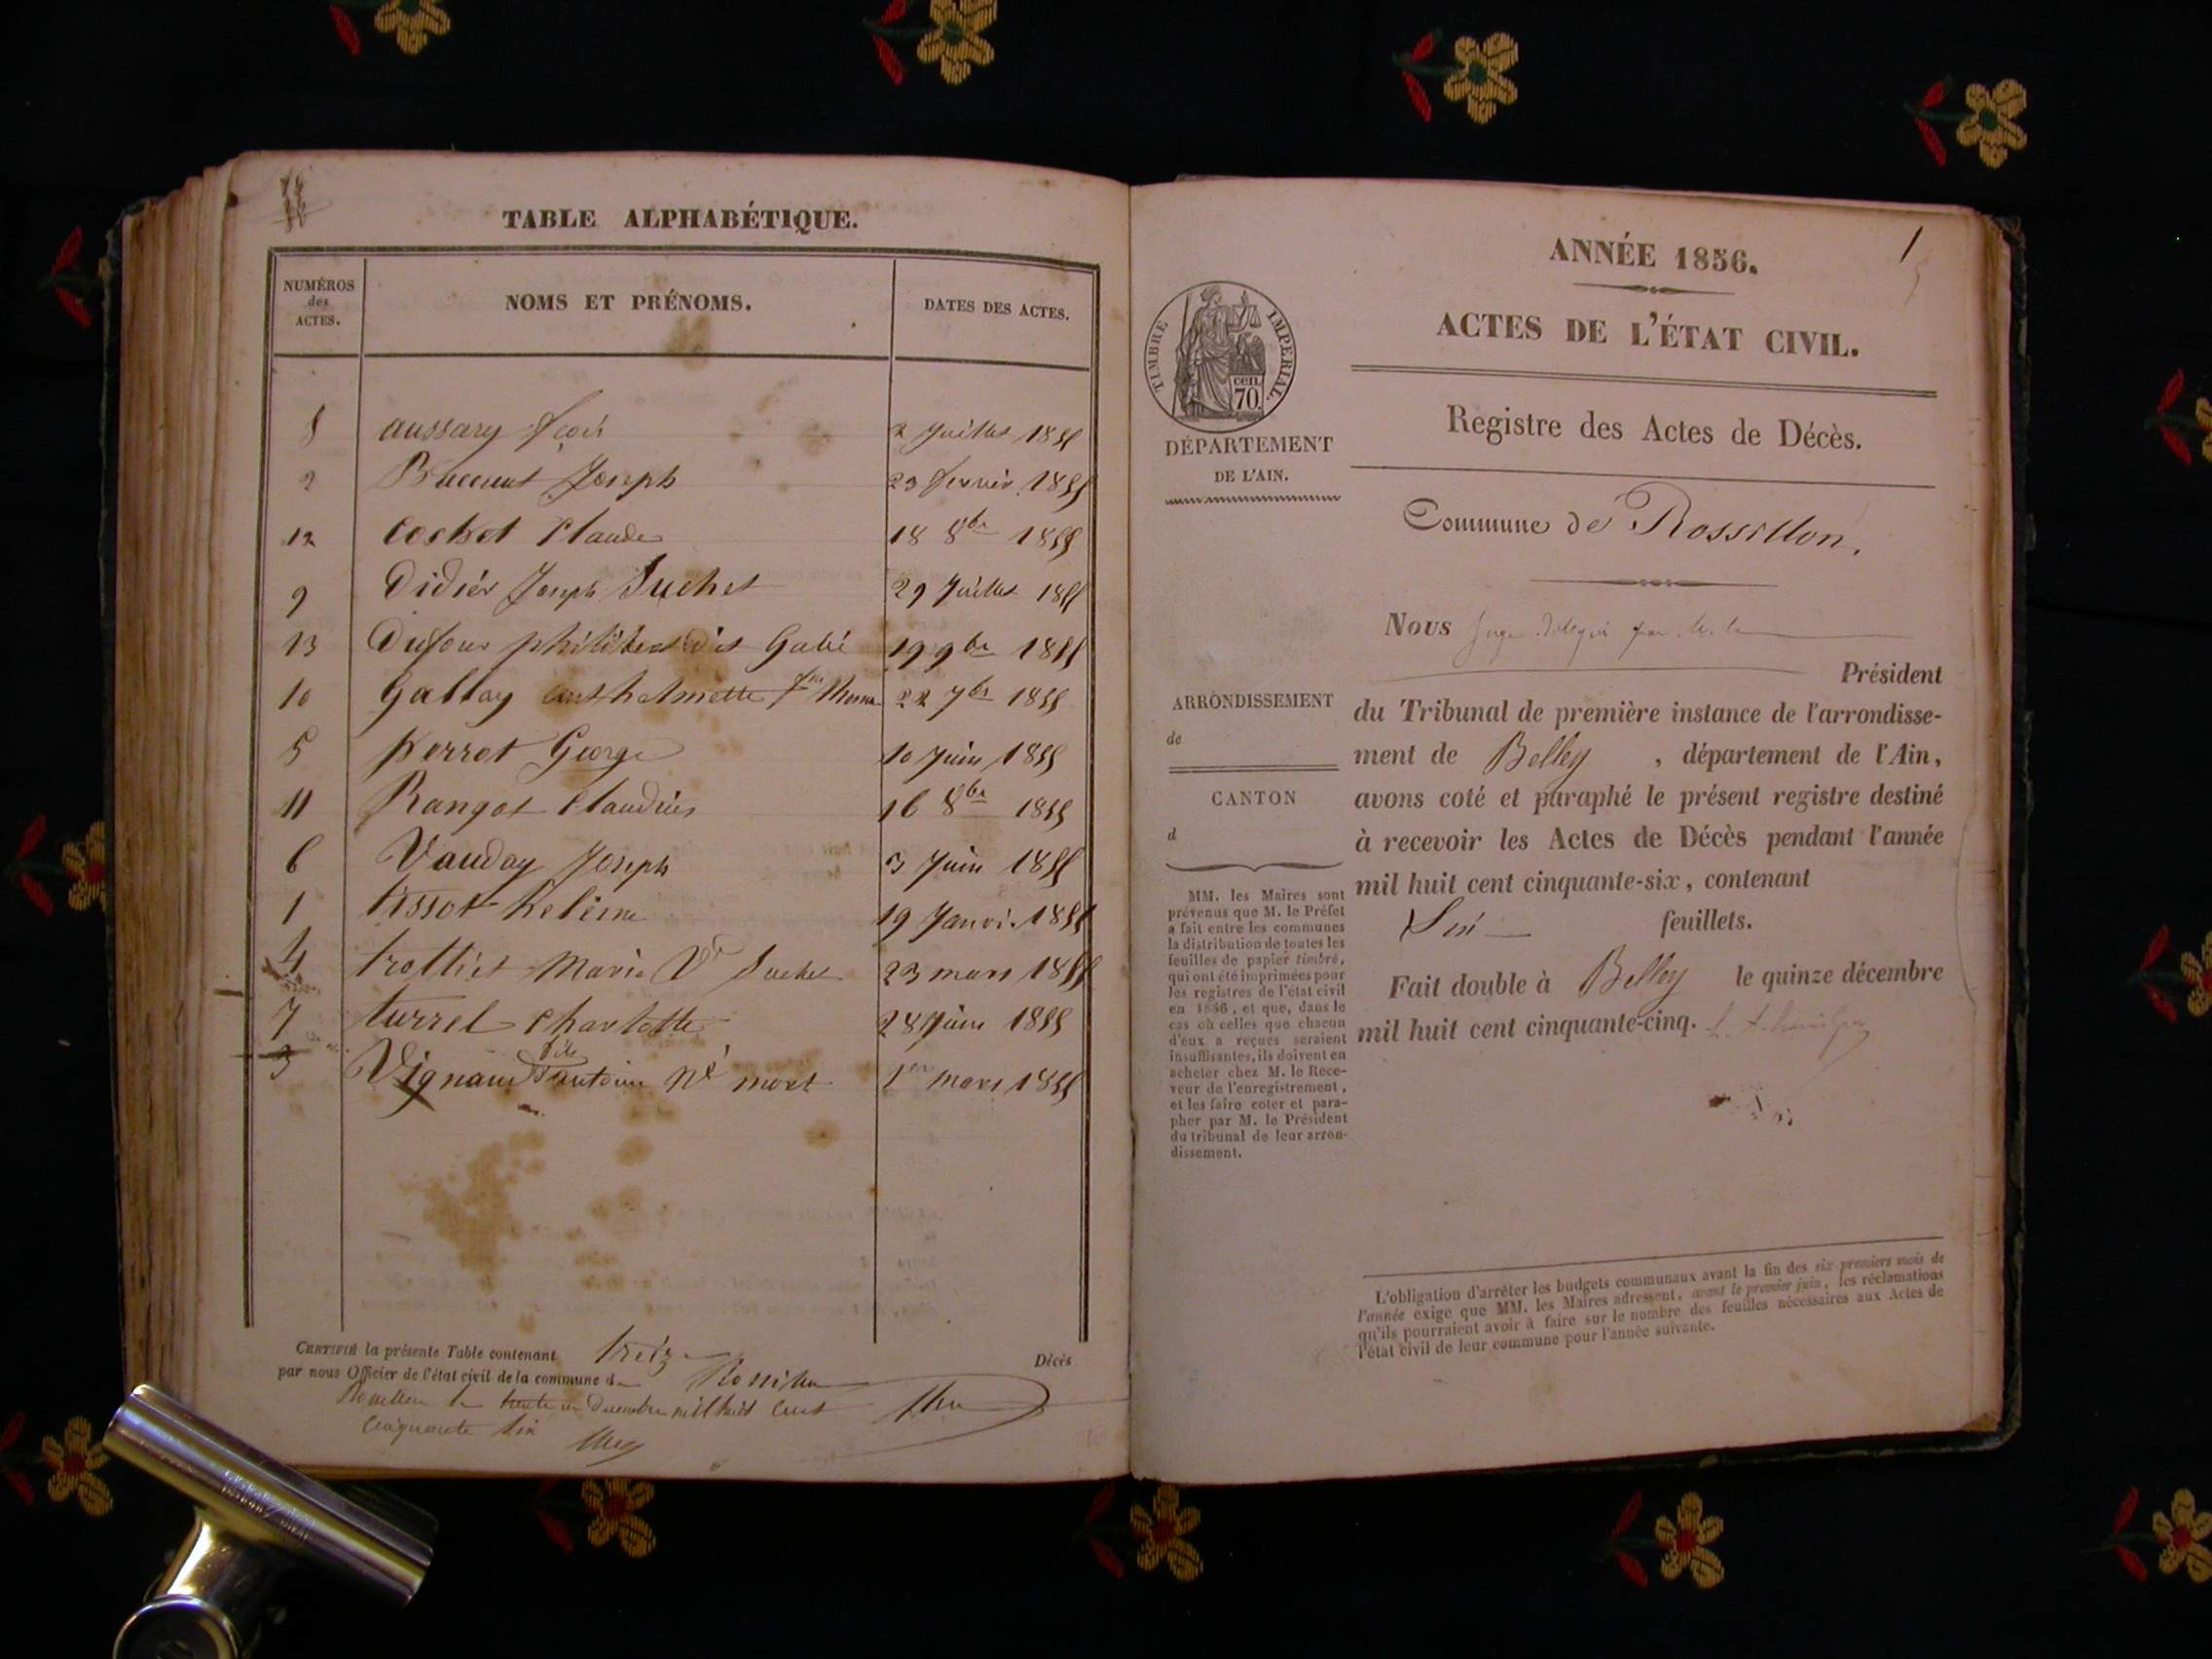 TABLE ALPHABÉTIQUE.
NUMÉROS
des
ACTES.
NOMS ET PRÉNOMS.
DATES DES ACTES.
8 aussary 2 Juillet 1855
2 Joseph 23 fevrier 1855
12 Cochet Claude 18 8bre 1855
9 Didier Joseph Suchet 29 Juillet 1855
13 Dufour philibert dit Gabé 19 9bre 1855
10 Gallay anthelmette 22 7bre 1855
5 perrot George 10 Juin 1855
11 Rangot Claudius 16 8bre 1855
6 Vauday Joseph 3 Juin 1855
1 tissot helène 19 Janvi. 1855
4 trolliet Marie Ve Suchet 23 mars 1855
7 turrel Charlotte 28 Juin 1855
3 Vignaud antoine né mort 1er mars 1855
CERTIFIÉ la présente Table contenant treize Décès
par nous Officier de l'état civil de la commune d Rossillon
Rossillon le trente un Decembre mil huit cent
Cinquante six
1
ANNÉE 1856.
ACTES DE L'ÉTAT CIVIL.
Registre des Actes de Décès.
Commune de Rossillon.
TIMBRE IMPERIAL.
cen.
70.
DÉPARTEMENT
DE L'AIN.
ARRONDISSEMENT
de
CANTON
d
MM. les Maires sont
prévenus que M. le Préfet
a fait entre les communes
la distribution de toutes les
feuilles de papier timbré,
qui ont été imprimées pour
les registres de l'état civil
en 1856, et que, dans le
cas où celles que chacun
d'eux a reçues seraient
insuffisantes, ils doivent en
acheter chez M. le Rece-
veur de l'enregistrement,
et les faire coter et para-
pher par M. le Président
du tribunal de leur arron-
dissement.
Nous Juge délégué par M. le
Président
du Tribunal de première instance de l'arrondisse-
ment de Belley, département de l'Ain,
avons coté et paraphé le présent registre destiné
à recevoir les Actes de Décès pendant l'année
mil huit cent cinquante-six, contenant
Six feuillets.
Fait double à Belley le quinze décembre
mil huit cent cinquante-cinq.
L'obligation d'arrêter les budgets communaux avant la fin des six premiers mois de
l'année exige que MM. les Maires adressent, avant le premier juin, les réclamations
qu'ils pourraient avoir à faire sur le nombre des feuilles nécessaires aux Actes de
l'état civil de leur commune pour l'année suivante.